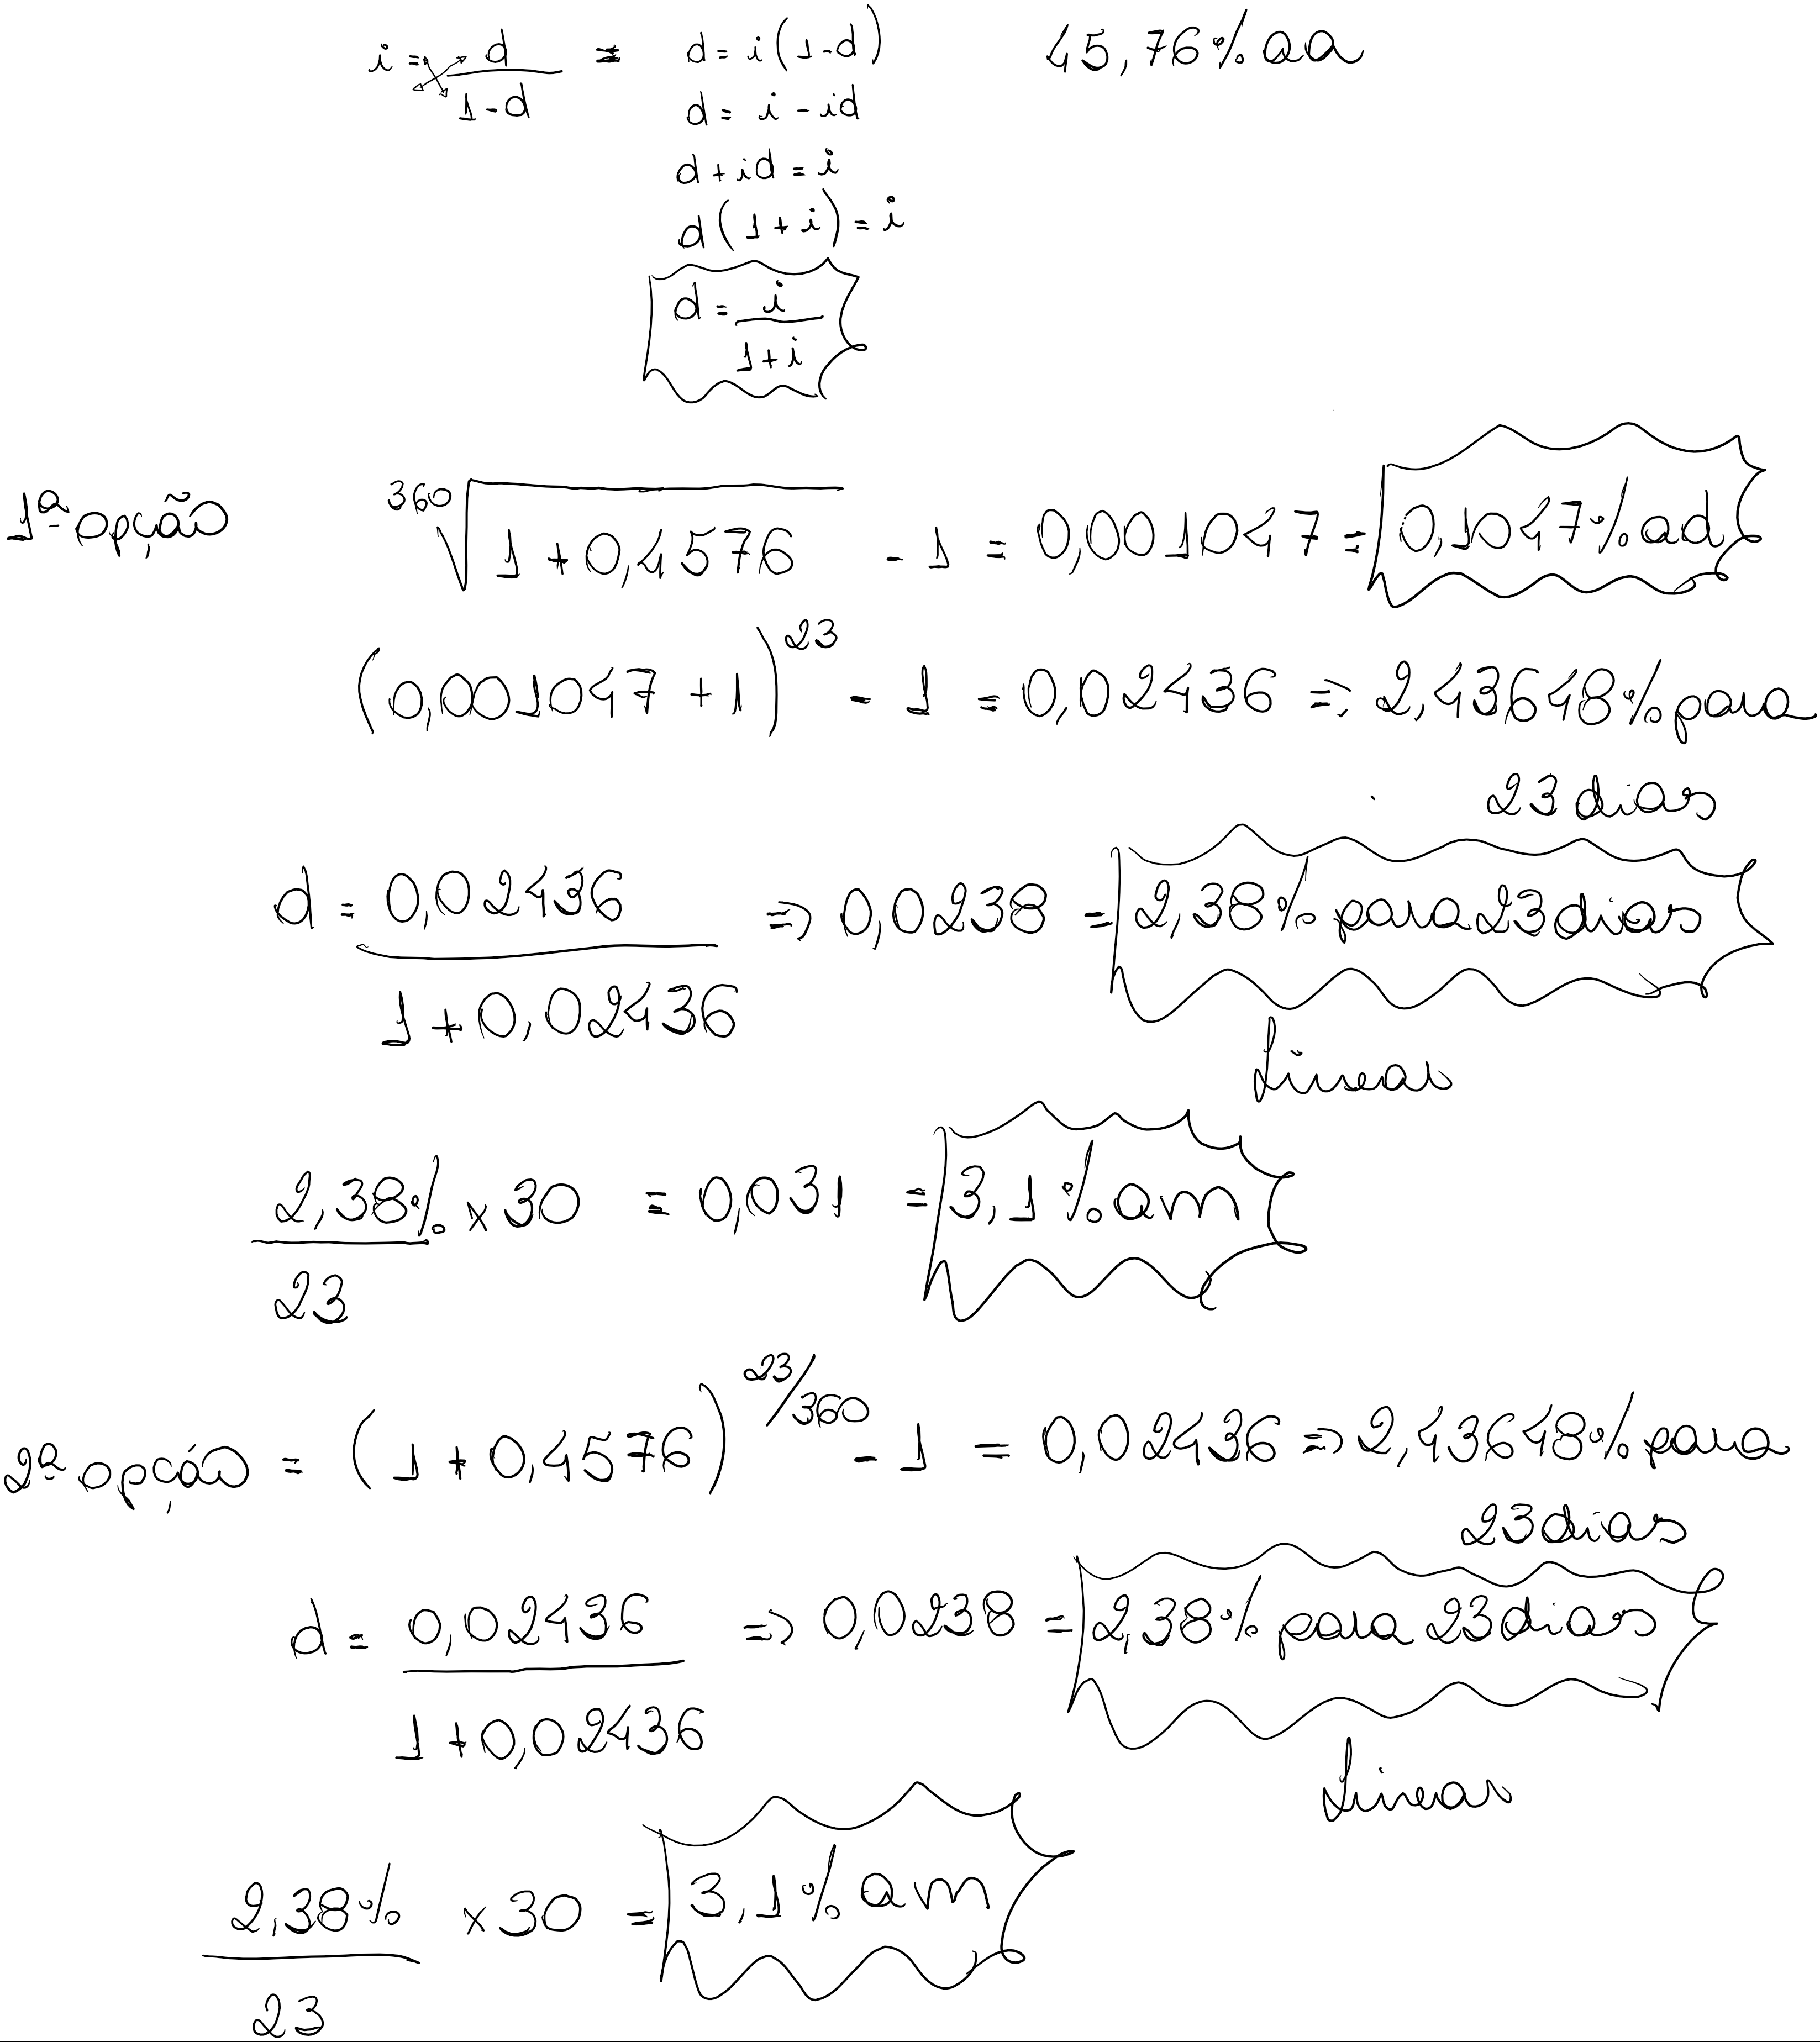 i = d / 1-d = d = i (1-d) 45,76% aa
d = i - id
d + id = i
d (1 + i) = i
d = i / 1 + i
1ª opção ³⁶⁰√(1 + 0,4576) - 1 = 0,001047 = 0,1047% ad
(0,001047 + 1)²³ - 1 = 0,02436 => 2,43648% para
23 dias
d = 0,02436 / 1 + 0,02436 => 0,0238 = 2,38% para 23 dias
Linear
2,38% / 23 x 30 = 0,031 = 3,1% am
2ª opção = (1 + 0,4576)^23/360 - 1 = 0,02436 => 2,43648% para
23 dias
d = 0,02436 / 1 + 0,02436 => 0,0238 = 2,38% para 23 dias
Linear
2,38% / 23 x 30 = 3,1% am